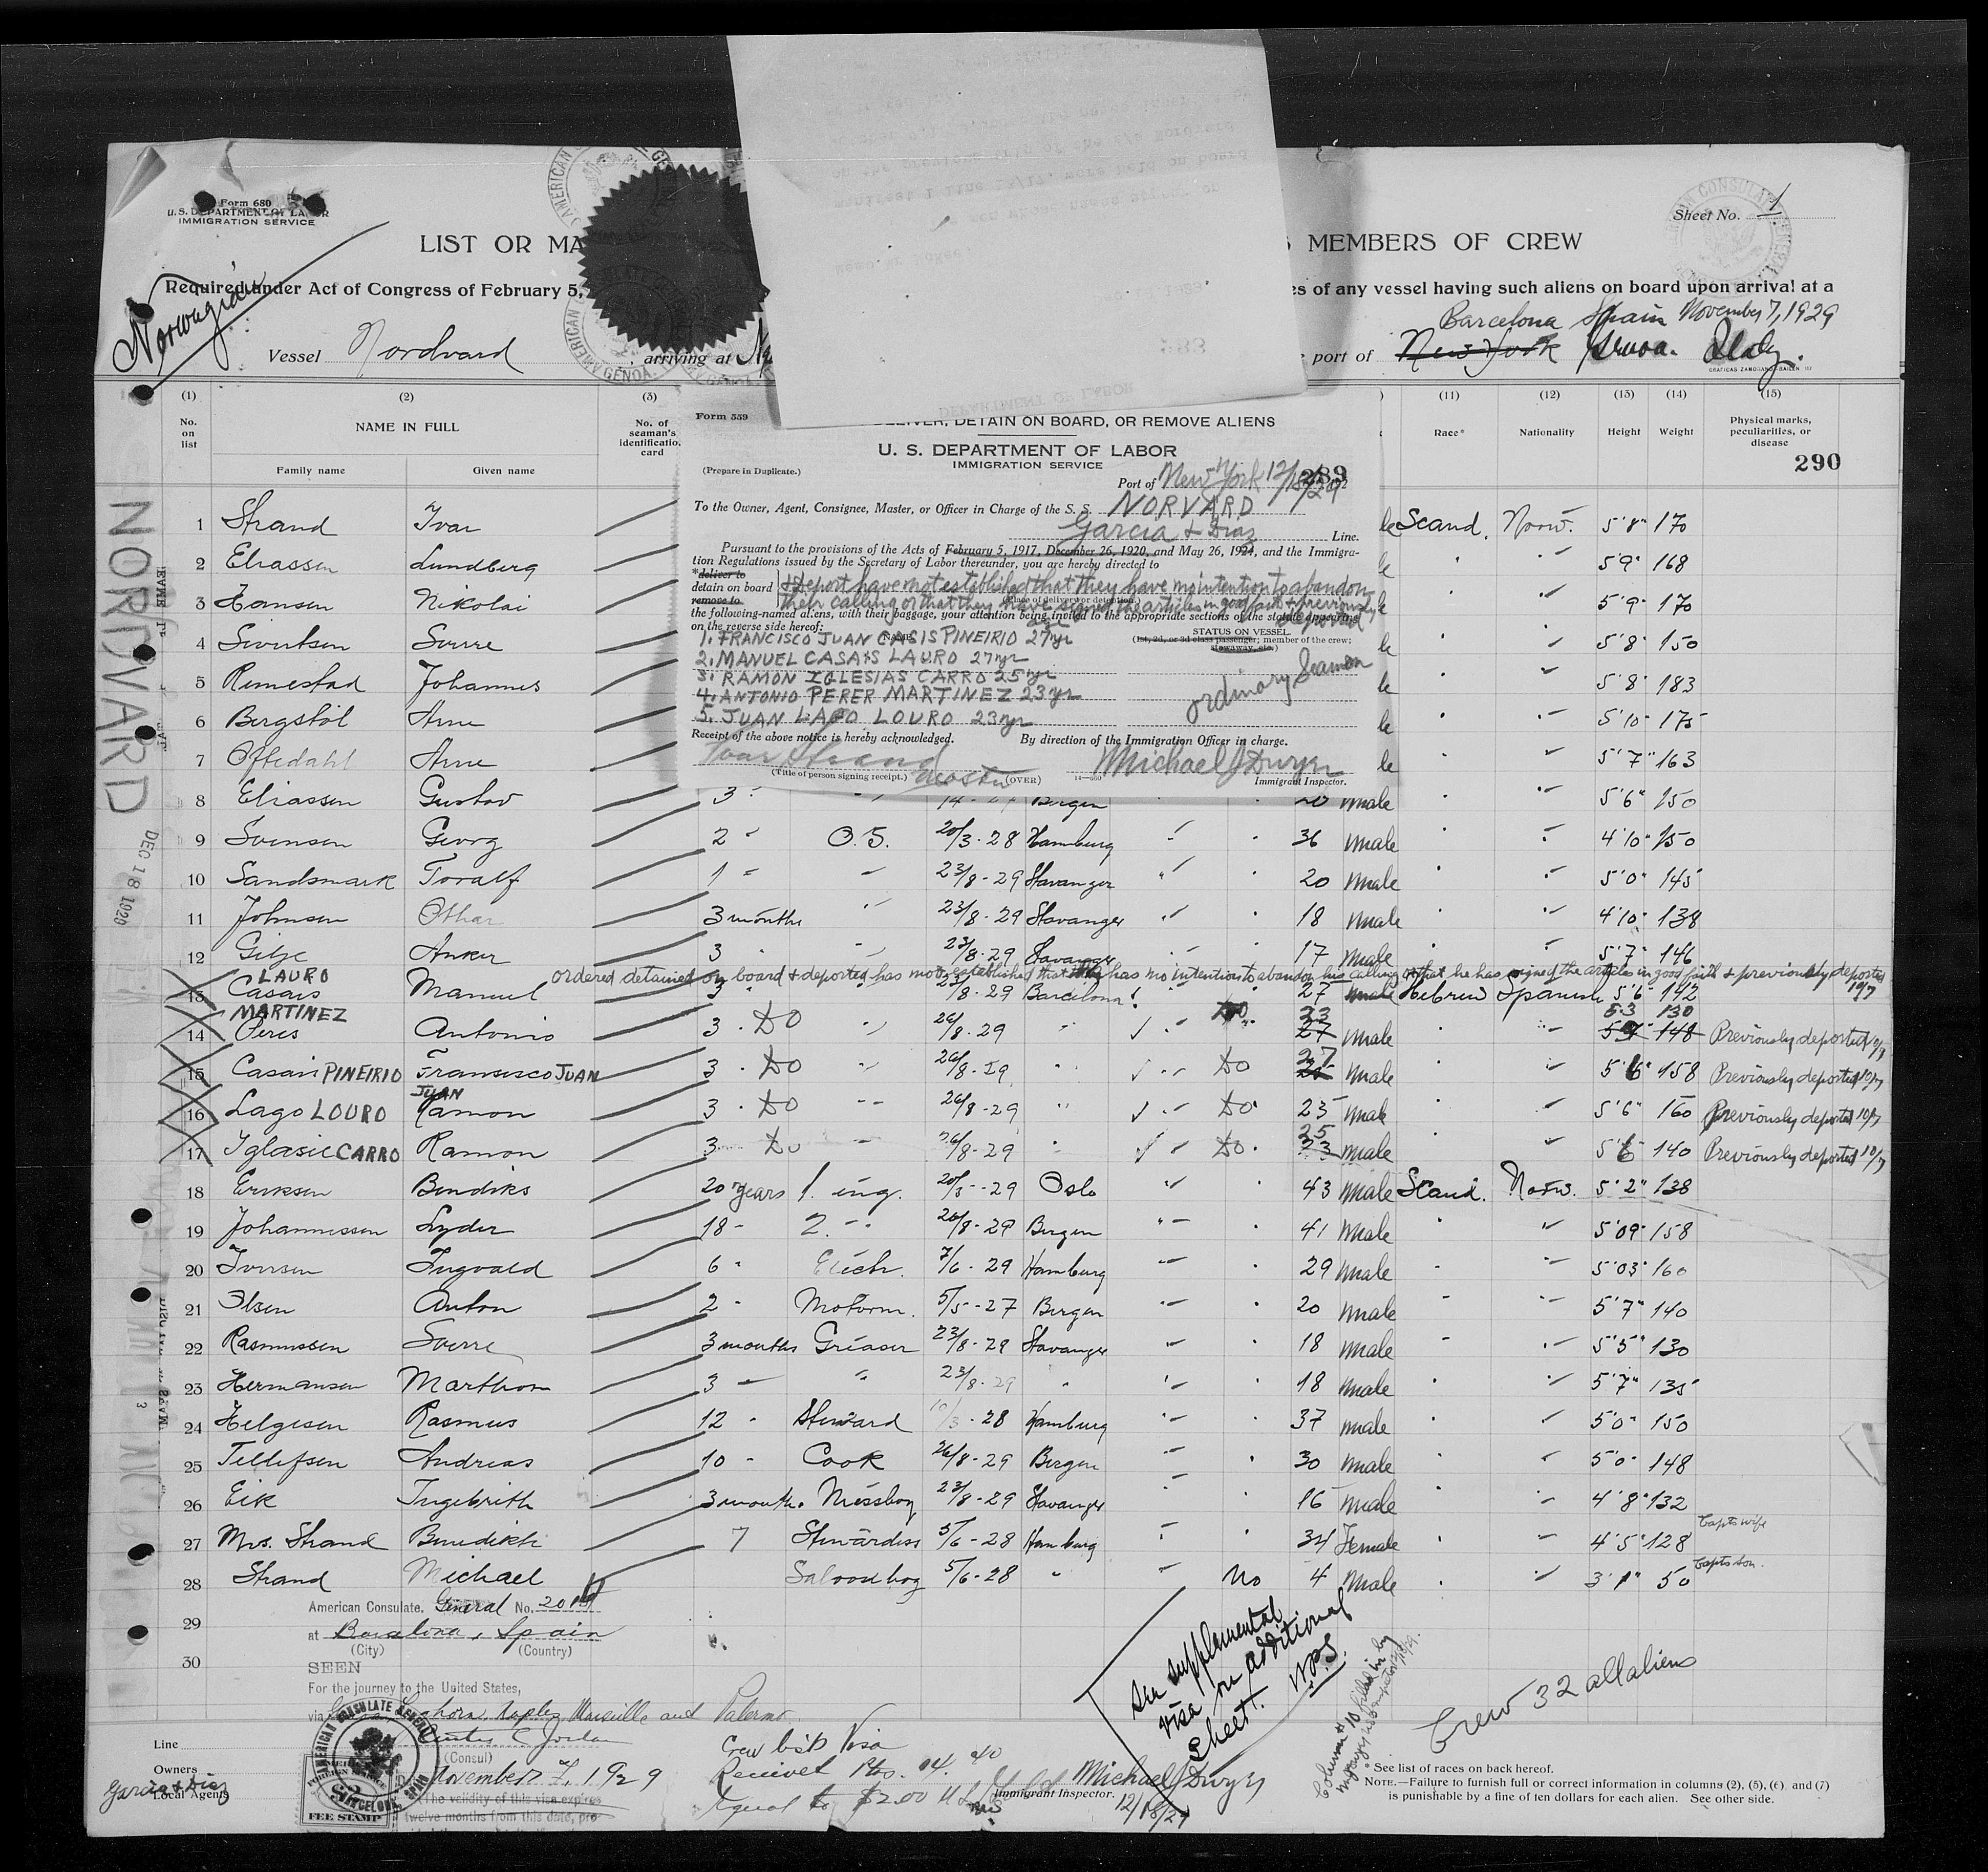 Form 680
U.S. DEPARTMENT OF LABOR
IMMIGRATION SERVICE
Sheet No. 1
LIST OR MA
S MEMBERS OF CREW
Required under Act of Congress of February 5,
es of any vessel having such aliens on board upon arrival at a
Norwegian
Barcelona Spain November 7, 1929
Vessel Nordvard , arriving at
port of New York Genoa. Italy.
(1) (2) (3) (11) (12) (13) (14) (15)
No. on list
NAME IN FULL
Family name Given name
No. of seaman's identification card
Race* Nationality Height Weight Physical marks, peculiarities, or disease
290
Form 559
DETAIN ON BOARD, OR REMOVE ALIENS
U. S. DEPARTMENT OF LABOR
IMMIGRATION SERVICE
(Prepare in Duplicate.)
289
Port of New York 12/18/29
To the Owner, Agent, Consignee, Master, or Officer in Charge of the S. S. NORVARD
Garcia & Diaz Line.
Pursuant to the provisions of the Acts of February 5, 1917, December 26, 1920, and May 26, 1924, and the Immigra-
tion Regulations issued by the Secretary of Labor thereunder, you are hereby directed to
*deliver to
detain on board
remove to
& deport have not established that they have no intention to abandon
their calling or that they have signed the articles in good faith & previously
deported
(Place of delivery or detention.)
the following-named aliens, with their baggage, your attention being invited to the appropriate sections of the statute appearing
on the reverse side hereof:
NAME
STATUS ON VESSEL
(1st, 2d, or 3d class passenger; member of the crew;
stowaway, etc.)
1. FRANCISCO JUAN CASIS PINEIRIO 27 yr
2. MANUEL CASAIS LAURO 27 yr
3. RAMON IGLESIAS CARRO 25 yr
4. ANTONIO PERER MARTINEZ 23 yr
5. JUAN LAGO LOURO 23 yr
ordinary Seamen
Receipt of the above notice is hereby acknowledged.
By direction of the Immigration Officer in charge.
Ivar Strand
master
Michael J Dwyer
(Title of person signing receipt.) (OVER)
Immigrant Inspector.
NORDVARD
DEC 18 1929
1 Strand Ivar Scand. Norw. 5'8" 170
2 Eliassen Lundberg 5'9" 168
3 Hansen Nikolai 5'9" 170
4 Sivertsen Sverre 5'8" 150
5 Rimestad Johannes 5'8" 183
6 Bergstöl Arne 5'10" 175
7 Oftedahl Arne 5'7" 163
8 Eliassen Gustav 3 Bergen 20 male 5'6" 150
9 Svensen Georg 2 O.S. 20/3-28 Hamburg 36 male 4'10" 150
10 Sandsmark Toralf 1 23/8-29 Stavanger 20 male 5'0" 145
11 Johnsen Othar 3 months 23/8-29 Stavanger 18 male 4'10" 138
12 Gilje Anker 3 23/8-29 Stavanger 17 male 5'7" 146
ordered detained on board & deported has not established that he has no intention to abandon his calling or that he has signed the articles in good faith & previously deported
10/7
13 Casais LAURO Manuel 3 /8-29 Barcelona 27 male Hebrew Spanish 5'6" 142
53 130
14 MARTINEZ Peres Antonio 3 DO 26/8-29 DO 23 27 male 148 Previously deported 10/7
15 Casais PINEIRIO Fransisco JUAN 3 DO 26/8-29 DO 27 male 5'6" 158 Previously deported 10/7
16 Lago LOURO JUAN Ramon 3 DO 26/8-29 DO 23 male 5'6" 160 Previously deported 10/7
17 Iglasie CARRO Ramon 3 DO 26/8-29 DO 25 23 male 5'6" 140 Previously deported 10/7
18 Eriksen Bendiks 20 years 1. eng. 29 Oslo 43 male Scand. Norw. 5'2" 138
19 Johannessen Lyder 18 2. 26/8-29 Bergen 41 male 5'09" 158
20 Iversen Ingvald 6 7/6-29 Hamburg 29 male 5'03" 160
21 Olsen Anton 2 Motorm. 5/5-27 Bergen 20 male 5'7" 140
22 Rasmussen Sverre 3 months Greaser 23/8-29 Stavanger 18 male 5'5" 130
23 Hermansen Marthon 3 23/8-29 18 male 5'7" 135
24 Helgesen Rasmus 12 Steward /3-28 Hamburg 37 male 5'0" 150
25 Tellefsen Andreas 10 Cook 26/8-29 Bergen 30 male 5'0" 148
26 Eik Ingebrith 3 months Messboy 23/8-29 Stavanger 16 male 4'8" 132
27 Mrs. Strand Benedikte 7 Stewardess 5/6-28 Hamburg 34 Female 4'5" 128 Capts wife
28 Strand Michael Saloonboy 5/6-28 No 4 male 3'1" 50 Capts son.
29
30
American Consulate General No.
at Barcelona, Spain
(City) (Country)
SEEN
For the journey to the United States,
via Leghorn, Naples, Marseille and Palermo
Curtis C Jordan
(Consul)
November 7, 1929
The validity of this visa expires
twelve months from this date, pro-
AMERICAN CONSULATE GENERAL
BARCELONA, SPAIN
FEE STAMP
Crew list Visa
Received Pts. 14.40
Equal to $2.00
see supplemental
visa on additional
sheet. W.P.S.
Column # 10 filled in by
Crew 32 all aliens
Line
Owners
Local Agents
Garcia & Diaz
Michael J Dwyer
Immigrant Inspector.
12/18/29
* See list of races on back hereof.
NOTE.—Failure to furnish full or correct information in columns (2), (5), (6) and (7)
is punishable by a fine of ten dollars for each alien. See other side.